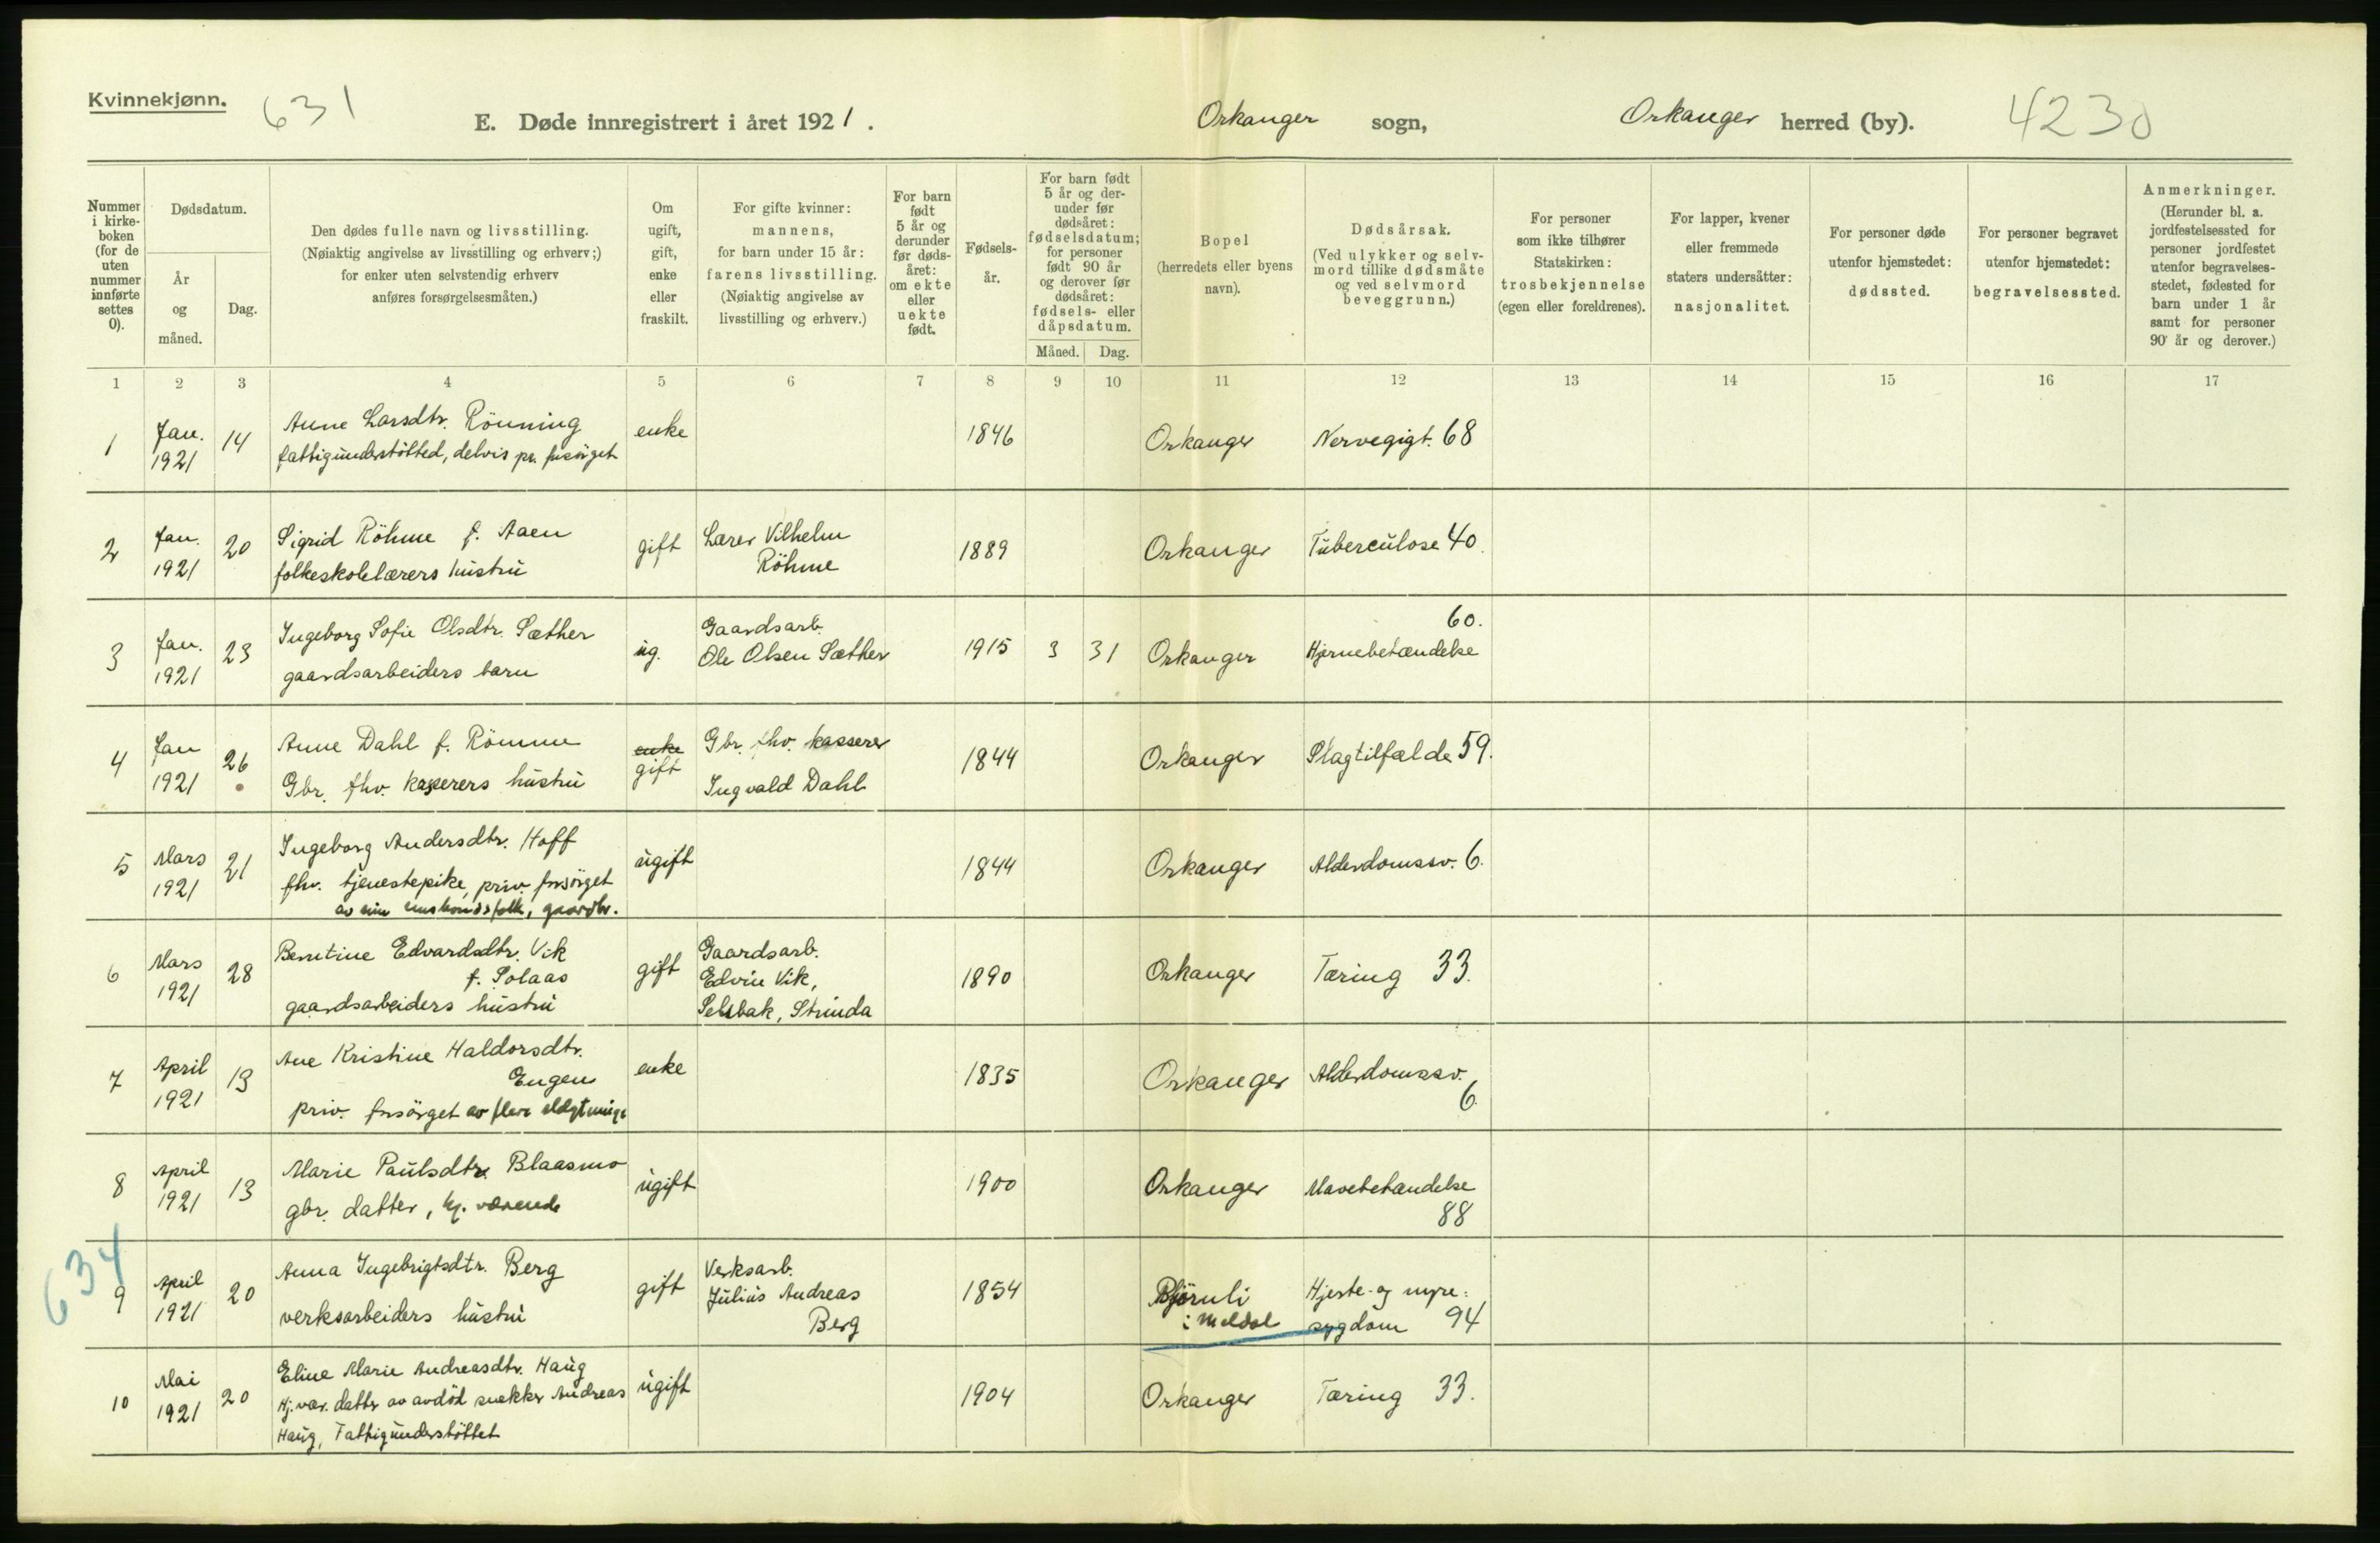 Kvinnekjønn.
631
E. Døde innregistrert i året 1921.
Orkanger sogn,
Orkanger herred (by).
4230
Nummer i kirke-boken (for de uten nummer innførte settes 0).
Dødsdatum.
År og måned.
Dag.
Den dødes fulle navn og livsstilling.
(Nøiaktig angivelse av livsstilling og erhverv;)
for enker uten selvstendig erhverv
anføres forsørgelsesmåten.)
Om ugift, gift, enke eller fraskilt.
For gifte kvinner:
mannens,
for barn under 15 år:
farens livsstilling.
(Nøiaktig angivelse av
livsstilling og erhverv.)
For barn født 5 år og derunder før døds-året: om ekte eller uekte født.
Fødsels-år.
For barn født 5 år og der-under før dødsåret: fødselsdatum; for personer født 90 år og derover før dødsåret: fødsels- eller dåpsdatum.
Måned.
Dag.
Bopel
(herredets eller byens
navn).
Dødsårsak.
(Ved ulykker og selv-
mord tillike dødsmåte
og ved selvmord
beveggrunn.)
For personer
som ikke tilhører
Statskirken:
trosbekjennelse
(egen eller foreldrenes).
For lapper, kvener
eller fremmede
staters undersåtter:
nasjonalitet.
For personer døde
utenfor hjemstedet:
dødssted.
For personer begravet
utenfor hjemstedet:
begravelsessted.
Anmerkninger.
(Herunder bl. a.
jordfestelsessted for
personer jordfestet
utenfor begravelses-
stedet, fødested for
barn under 1 år
samt for personer
90 år og derover.)
1 2 3 4 5 6 7 8 9 10 11 12 13 14 15 16 17
1 Jan. 1921 14 Anne Larsdtr. Rönning
fattigunderstötted, delvis pr. forsörget
enke 1846 Orkanger Nervegigt. 68
2 Jan. 1921 20 Sigrid Röhme f. Aaen
folkeskolelærers hustru
gift Lærer Vilhelm
Röhme
1889 Orkanger Tuberculose 40.
3 Jan. 1921 23 Ingeborg Sofie Olsdtr. Sæther
gaardsarbeiders barn
ug. Gaardsarb.
Ole Olsen Sæther
1915 3 31 Orkanger 60.
Hjernebetændelse
4 Jan 1921 26 Anne Dahl f. Römme
Gbr. fhv. kasserers hustru
enke
gift
Gbr. fhv. kasserer
Ingvald Dahl
1844 Orkanger Slagtilfælde 59.
5 Mars 1921 21 Ingeborg Andersdtr. Hoff
fhv. tjenestepike, priv. forsörget
av sin husbondsfolk, gaardbr.
ugift 1844 Orkanger Alderdomssv. 6.
6 Mars 1921 28 Berntine Edvardsdtr. Vik
f. Solaas
gaardsarbeiders hustru
gift Gaardsarb.
Edvin Vik,
Selsbak, Strinda
1890 Orkanger Tæring 33.
7 April 1921 13 Ane Kristine Haldorsdtr.
Engen
priv. forsörget av flere slegtninge
enke 1835 Orkanger Alderdomssv.
6.
8 April 1921 13 Marie Paulsdtr. Blaasmo
gbr. datter, hj. værende
ugift 1900 Orkanger Mavebetændelse
88
634
9 April 1921 20 Anna Ingebrigtsdtr. Berg
verksarbeiders hustru
gift Verksarb.
Julius Andreas
Berg
1854 Björnli
i Meldal
Hjerte- og nyre:
sygdom 94
10 Mai 1921 20 Eline Marie Andreasdtr. Haug
Hj. vær. datter av avdöd snekker Andreas
Haug, Fattigunderstöttet
ugift 1904 Orkanger Tæring 33.